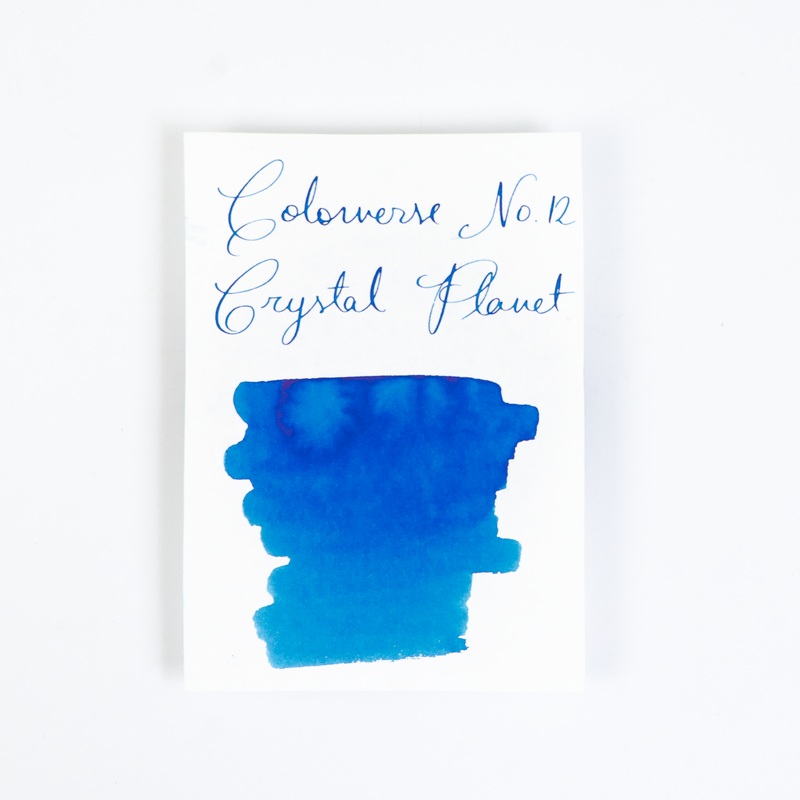 Colorverse No. 12
Crystal Planet